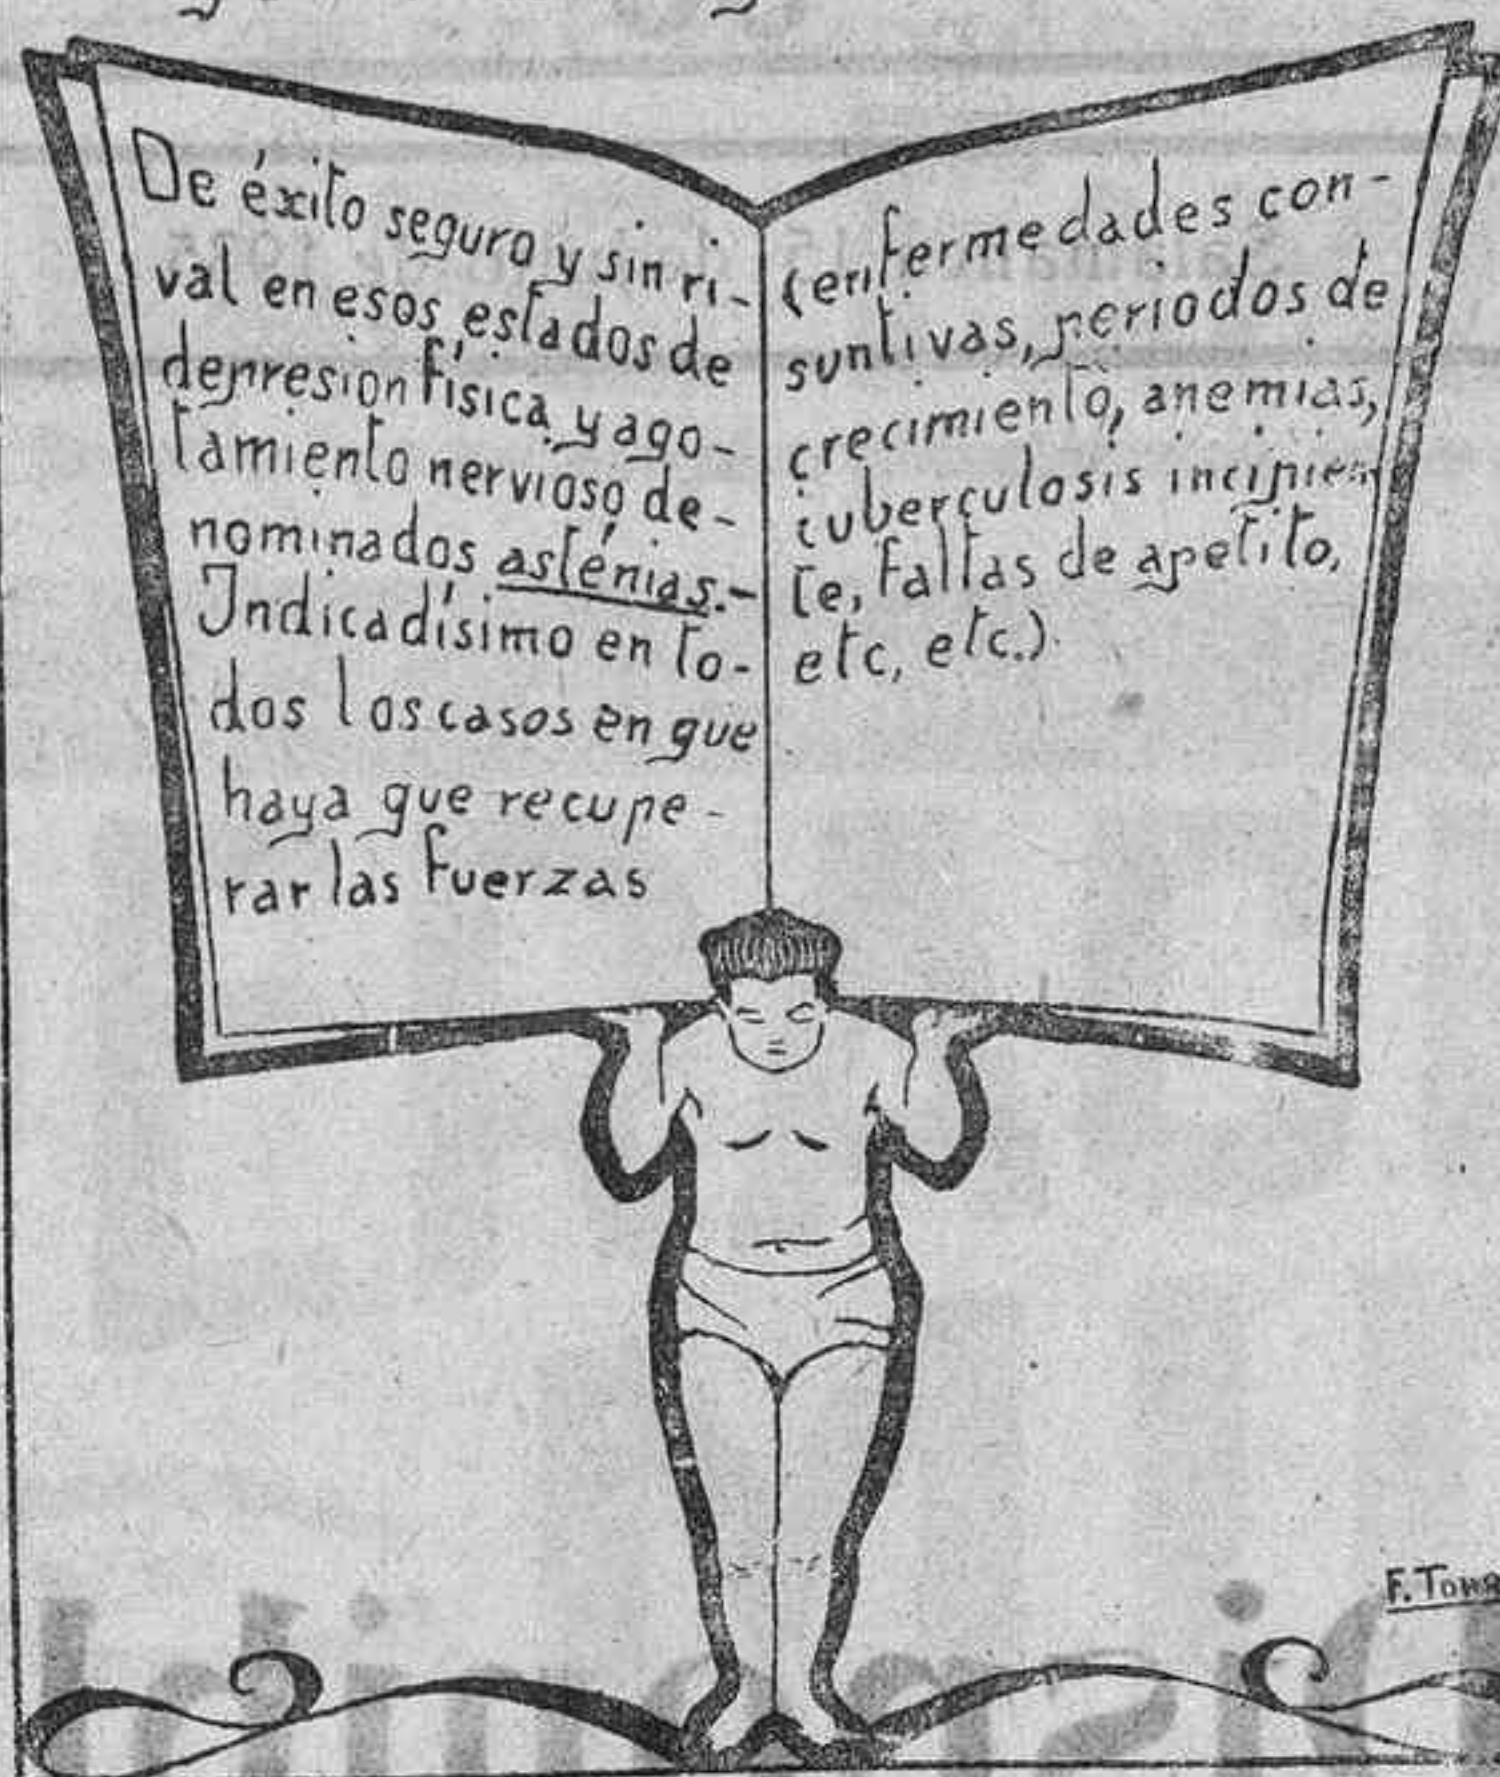 De éxito seguro y sin ri-
val en esos estados de
depresion física y ago-
tamiento nervioso de-
nominados asténias.-
Indicadísimo en to-
dos los casos en que
haya que recupe-
rar las fuerzas
(enfermedades con-
suntivas, periodos de
crecimiento, anemias,
tuberculosis incipien
te, faltas de apetito,
etc, etc.).